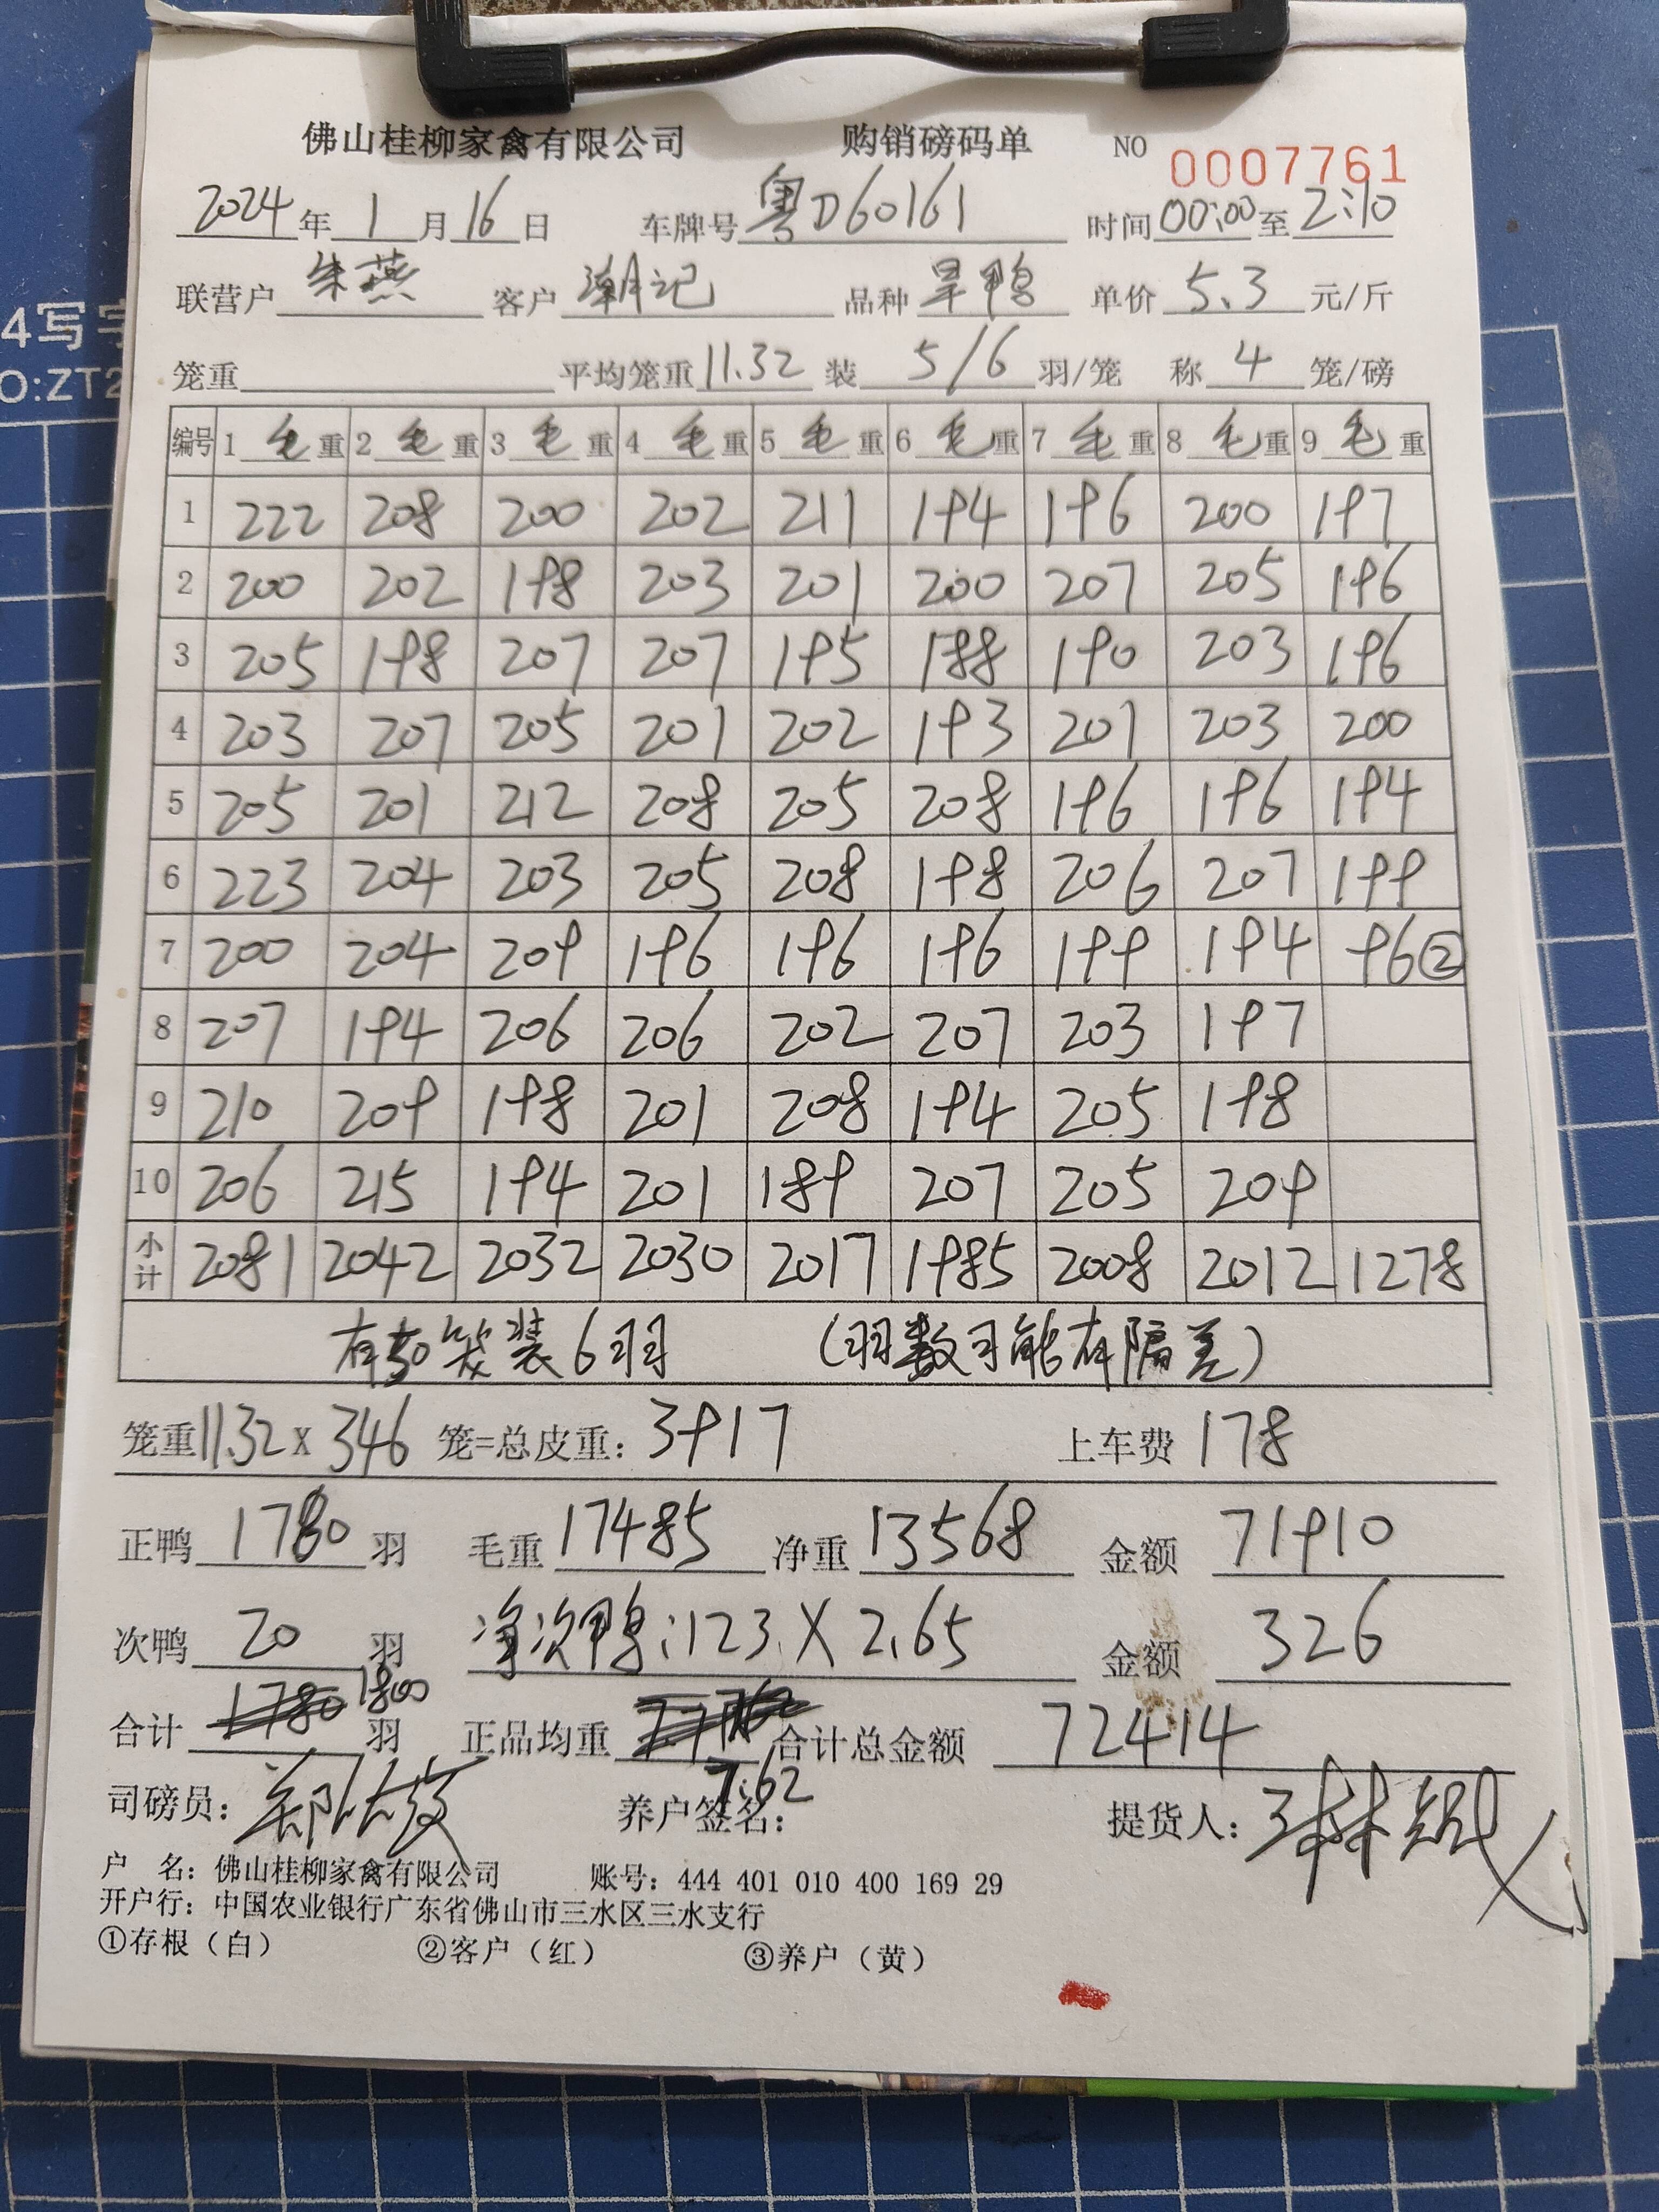 佛山桂柳家禽有限公司 购销磅码单 NO 0007761
2024年1月16日 车牌号 粤D60161 时间 00:00 至 2:10
联营户 朱燕 客户 潮记 品种 旱鸭 单价 5.3 元/斤
笼重 平均笼重 11.32 装 5/6 羽/笼 称 4 笼/磅
编号 1 毛重 2 毛重 3 毛重 4 毛重 5 毛重 6 毛重 7 毛重 8 毛重 9 毛重
1 222 208 200 202 211 194 196 200 197
2 200 202 198 203 201 200 207 205 196
3 205 198 207 207 195 188 190 203 196
4 203 207 205 201 202 193 201 203 200
5 205 201 212 208 205 208 196 196 194
6 223 204 203 205 208 198 206 207 199
7 200 204 209 196 196 196 199 194 96②
8 207 194 206 206 202 207 203 197
9 210 209 198 201 208 194 205 198
10 206 215 194 201 189 207 205 209
小计 2081 2042 2032 2030 2017 1985 2008 2012 1278
有50笼装6羽 (羽数可能有隔差)
笼重 11.32 x 346 笼=总皮重: 3917 上车费 178
正鸭 1780 羽 毛重 17485 净重 13568 金额 71910
次鸭 20 羽 净次鸭:123 X 2.65 金额 326
合计 1780 1800 羽 正品均重 7.62 合计总金额 72414
司磅员: 养户签名: 提货人:
户 名: 佛山桂柳家禽有限公司 账号: 444 401 010 400 169 29
开户行: 中国农业银行广东省佛山市三水区三水支行
①存根（白） ②客户（红） ③养户（黄）
4写字
O:ZT2